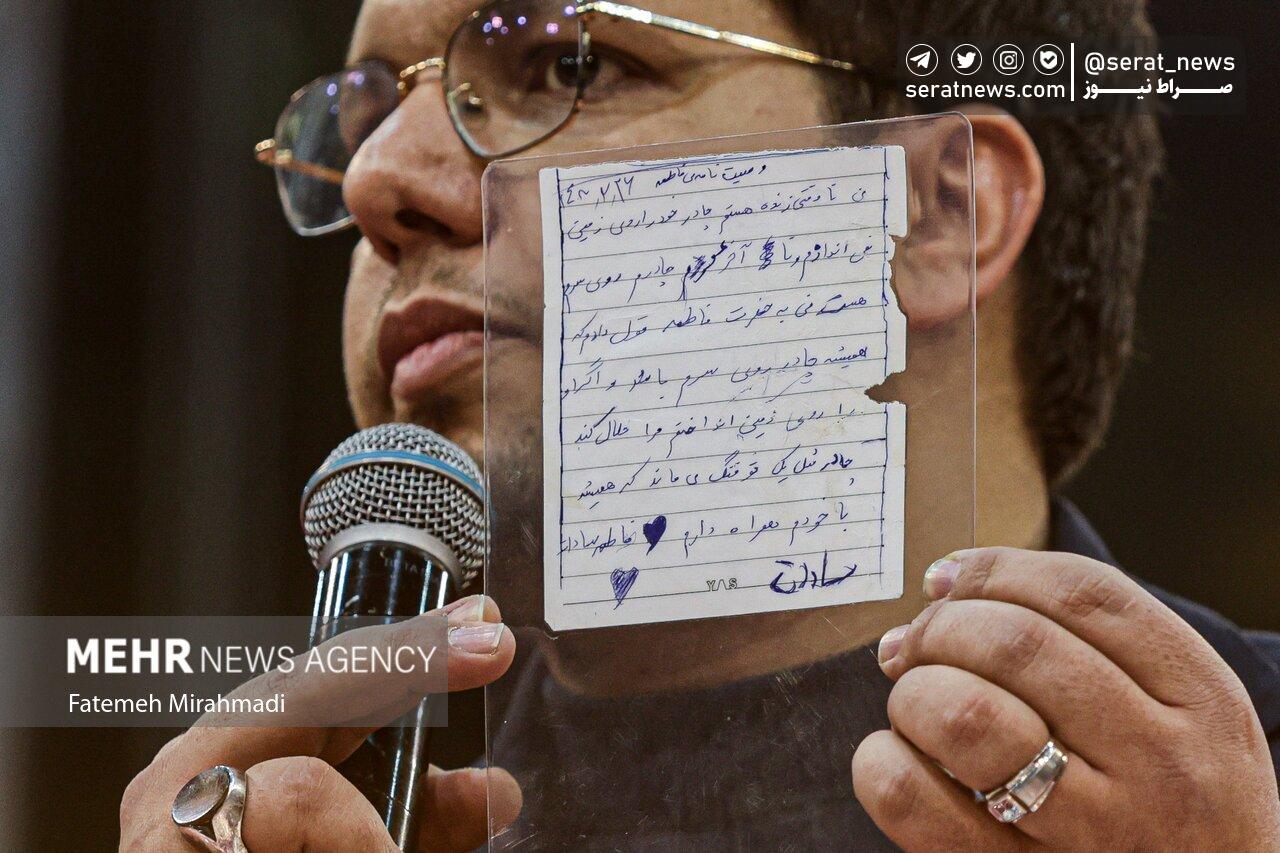 @serat_news
seratnews.com
صراط نیوز
وصیت نامه‌ی فاطمه
من تا وقتی زنده هستم چادر خود را روی زمین
نمی اندازم و تا آخر چادرم روی سرم
هست من به حضرت فاطمه قول دادم که
همیشه چادر روی سرم باشد و اگر او
را روی زمین انداختم مرا حلال کند
چادر مثل یک تفنگ می ماند که همیشه
با خودم همراه دارم فاطمه سادات
سادات
YAS
MEHR NEWS AGENCY
Fatemeh Mirahmadi